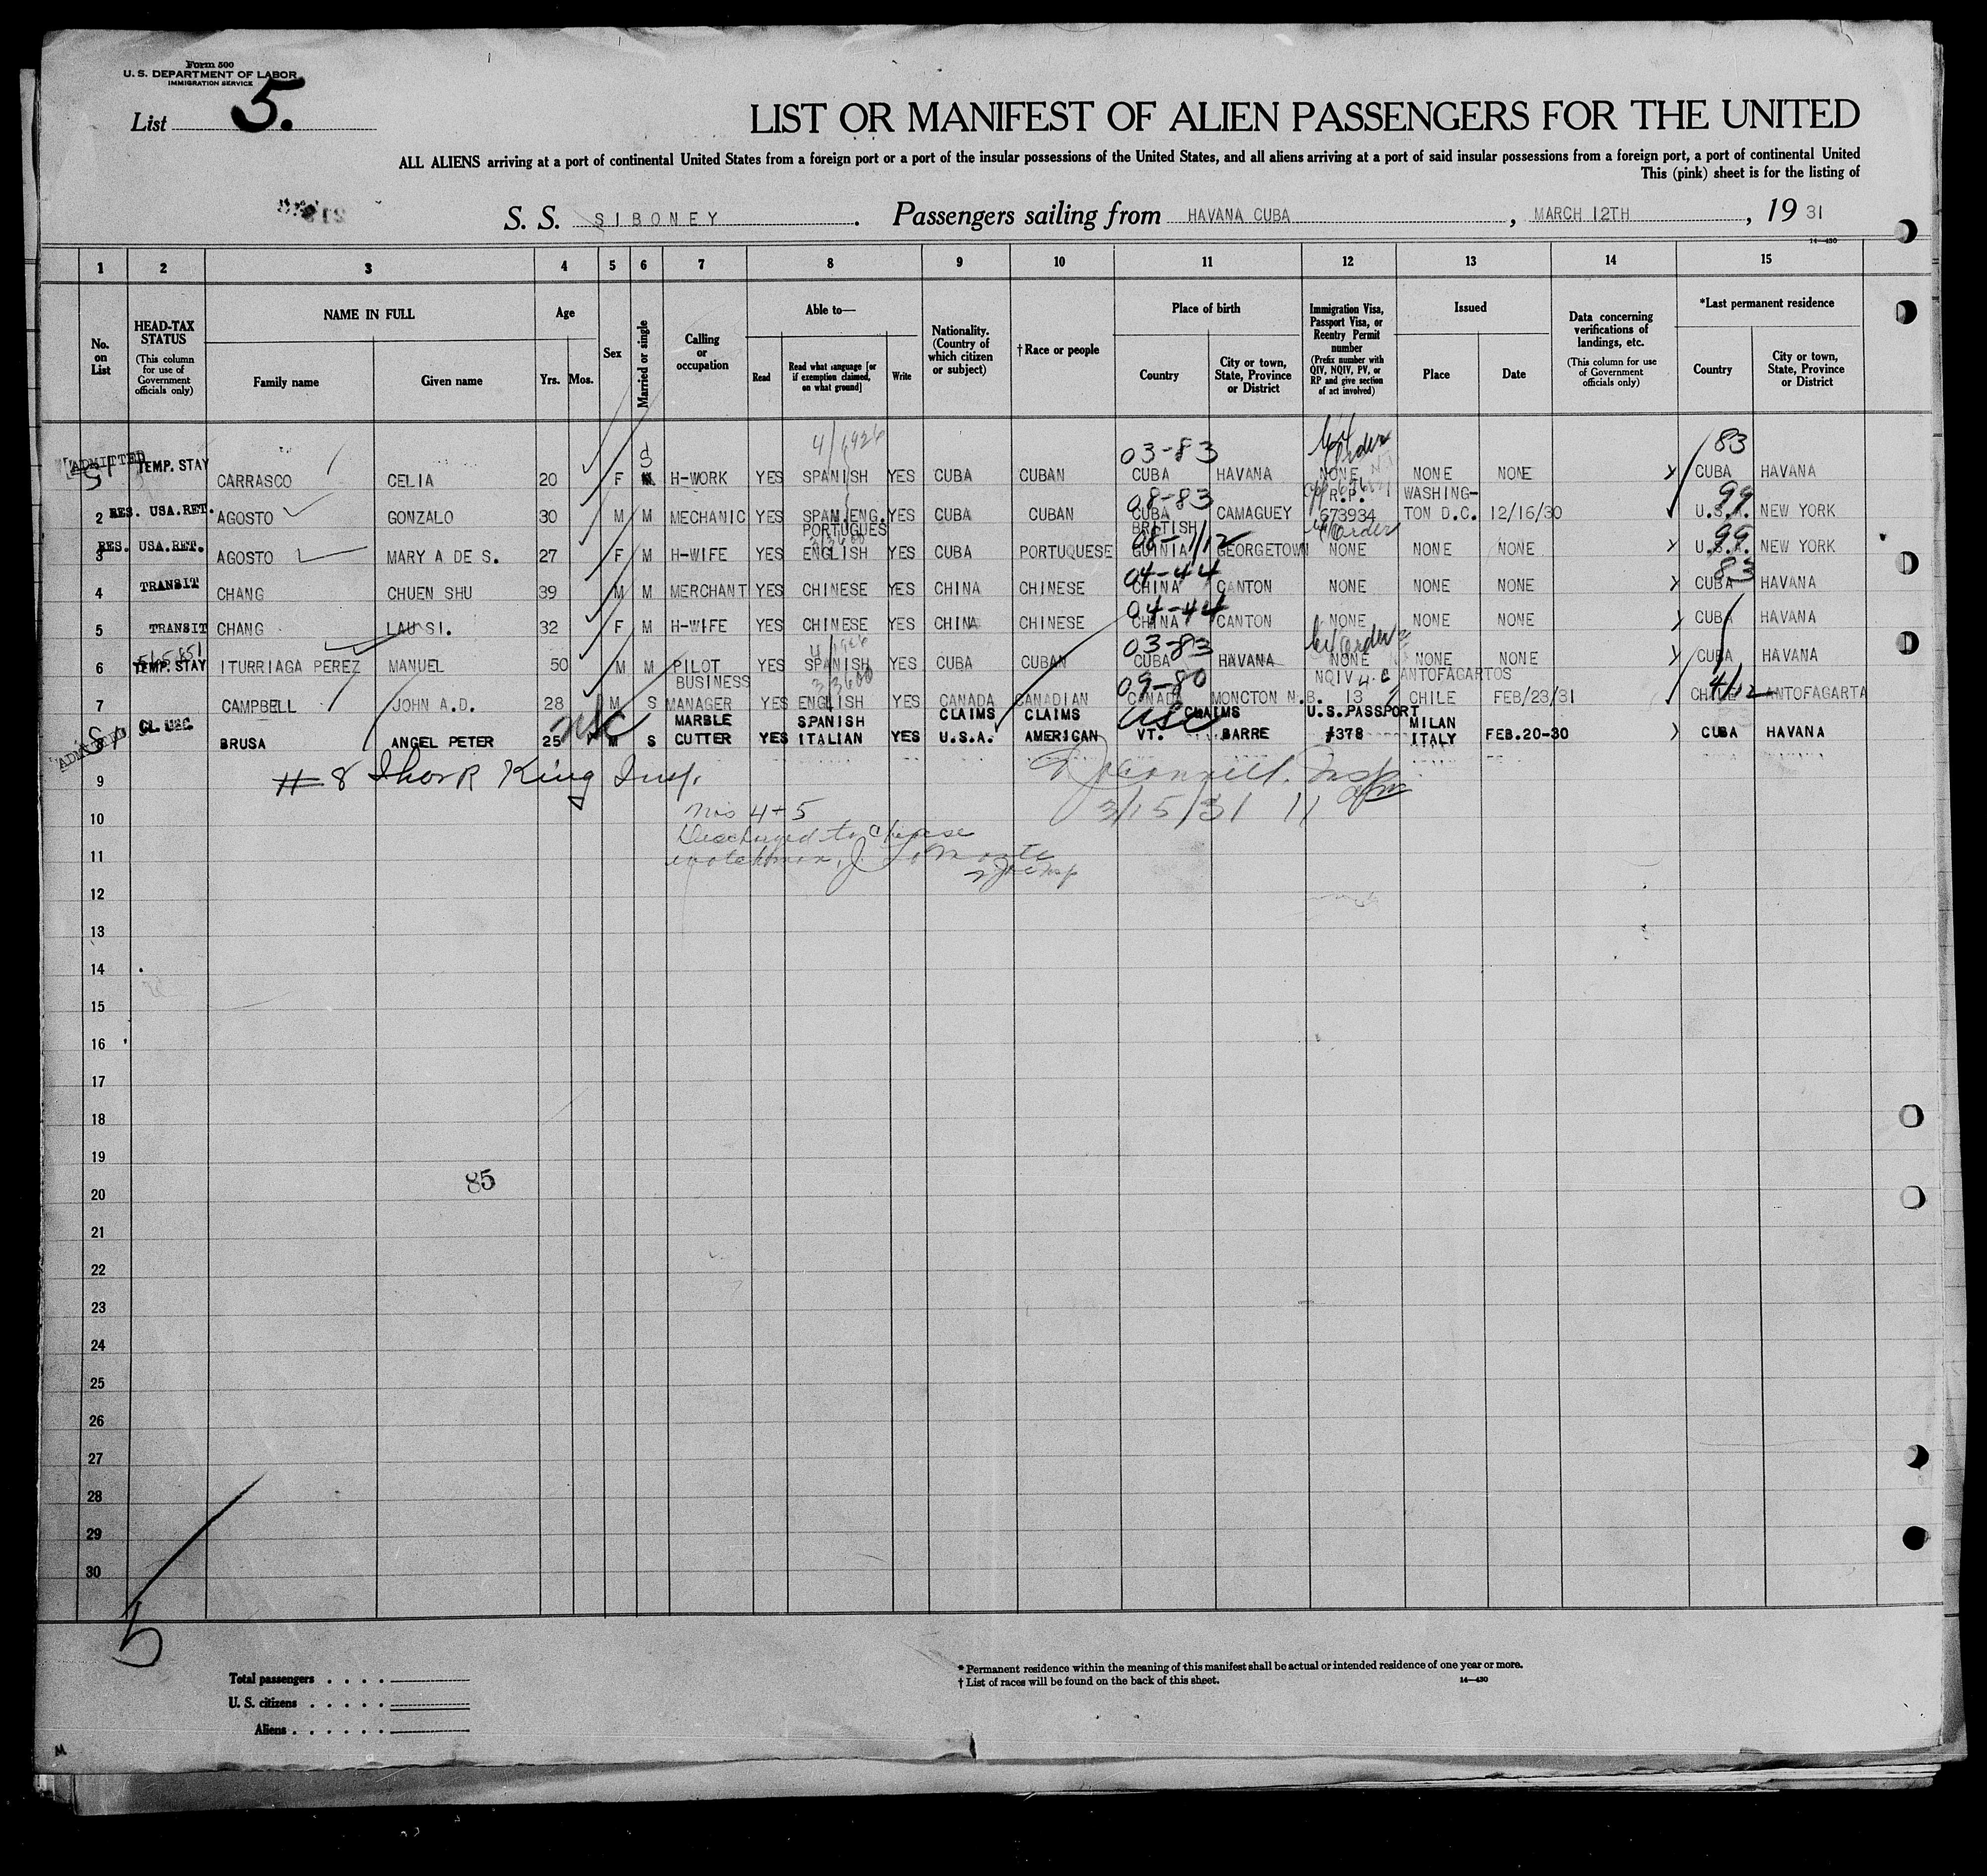 Form 500
U. S. DEPARTMENT OF LABOR
IMMIGRATION SERVICE
List 5.
LIST OR MANIFEST OF ALIEN PASSENGERS FOR THE UNITED
ALL ALIENS arriving at a port of continental United States from a foreign port or a port of the insular possessions of the United States, and all aliens arriving at a port of said insular possessions from a foreign port, a port of continental United
This (pink) sheet is for the listing of
S. S. SIBONEY. Passengers sailing from HAVANA CUBA, MARCH 12TH, 19 31
14—430
1 2 3 4 5 6 7 8 9 10 11 12 13 14 15
No. on List
HEAD-TAX STATUS (This column for use of Government officials only)
NAME IN FULL
Family name
Given name
Age
Yrs. Mos.
Sex
Married or single
Calling or occupation
Able to—
Read
Read what language [or if exemption claimed, on what ground]
Write
Nationality. (Country of which citizen or subject)
†Race or people
Place of birth
Country
City or town, State, Province or District
Immigration Visa, Passport Visa, or Reentry Permit number (Prefix number with QIV, NQIV, PV, or RP and give section of act involved)
Issued
Place
Date
Data concerning verifications of landings, etc. (This column for use of Government officials only)
*Last permanent residence
Country
City or town, State, Province or District
4/1926 03-83 83
ADMITTED TEMP. STAY CARRASCO CELIA 20 F S H-WORK YES SPANISH YES CUBA CUBAN CUBA HAVANA NONE NONE NONE CUBA HAVANA
08-83 R.P. WASHING- 99
2 RES. USA.RET. AGOSTO GONZALO 30 M M MECHANIC YES SPAN.ENG. YES CUBA CUBAN CUBA CAMAGUEY 673934 TON D.C. 12/16/30 U.S.A. NEW YORK
PORTUGUES BRITISH 08-1/12 99
3 RES. USA.RET. AGOSTO MARY A DE S. 27 F M H-WIFE YES ENGLISH YES CUBA PORTUQUESE GUINIA GEORGETOWN NONE NONE NONE U.S.A. NEW YORK
04-44 83
4 TRANSIT CHANG CHUEN SHU 39 M M MERCHANT YES CHINESE YES CHINA CHINESE CHINA CANTON NONE NONE NONE CUBA HAVANA
04-44
5 TRANSIT CHANG LAU SI. 32 F M H-WIFE YES CHINESE YES CHINA CHINESE CHINA CANTON NONE NONE NONE CUBA HAVANA
4/1926 03-83
6 TEMP. STAY ITURRIAGA PEREZ MANUEL 50 M M PILOT YES SPANISH YES CUBA CUBAN CUBA HAVANA NONE NONE NONE CUBA HAVANA
BUSINESS 3/3600 09-80 NQIV 4.C ANTOFAGARTOS 4/12
7 CAMPBELL JOHN A.D. 28 M S MANAGER YES ENGLISH YES CANADA CANADIAN CANADA MONCTON N.B. 13 CHILE FEB/23/31 CHILE ANTOFAGARTA
MARBLE SPANISH CLAIMS CLAIMS USC CLAIMS U.S.PASSPORT MILAN
8 BRUSA ANGEL PETER 25 M S CUTTER YES ITALIAN YES U.S.A. AMERICAN VT. BARRE #378 ITALY FEB.20-30 CUBA HAVANA
9 # 8 Thos R King Insp.
3/15/31 11
10 Nos 4+5
Discharged to Chinese
11
12
13
14
15
16
17
18
19
85
20
21
22
23
24
25
26
27
28
29
30
5
Total passengers . . . .
U. S. citizens . . . . .
Aliens . . . . . .
* Permanent residence within the meaning of this manifest shall be actual or intended residence of one year or more.
† List of races will be found on the back of this sheet.
14—430